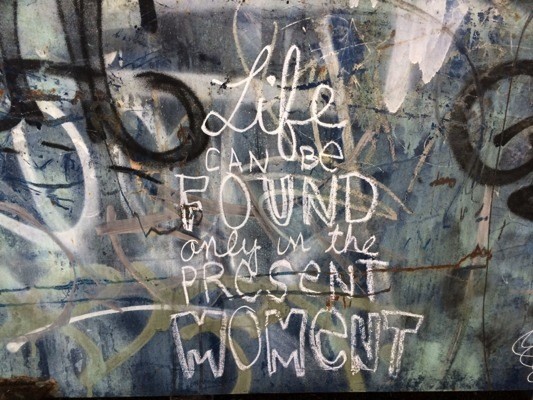 Life
CAN Be
FOUND
only in the
PReSeNT
MOMeNT